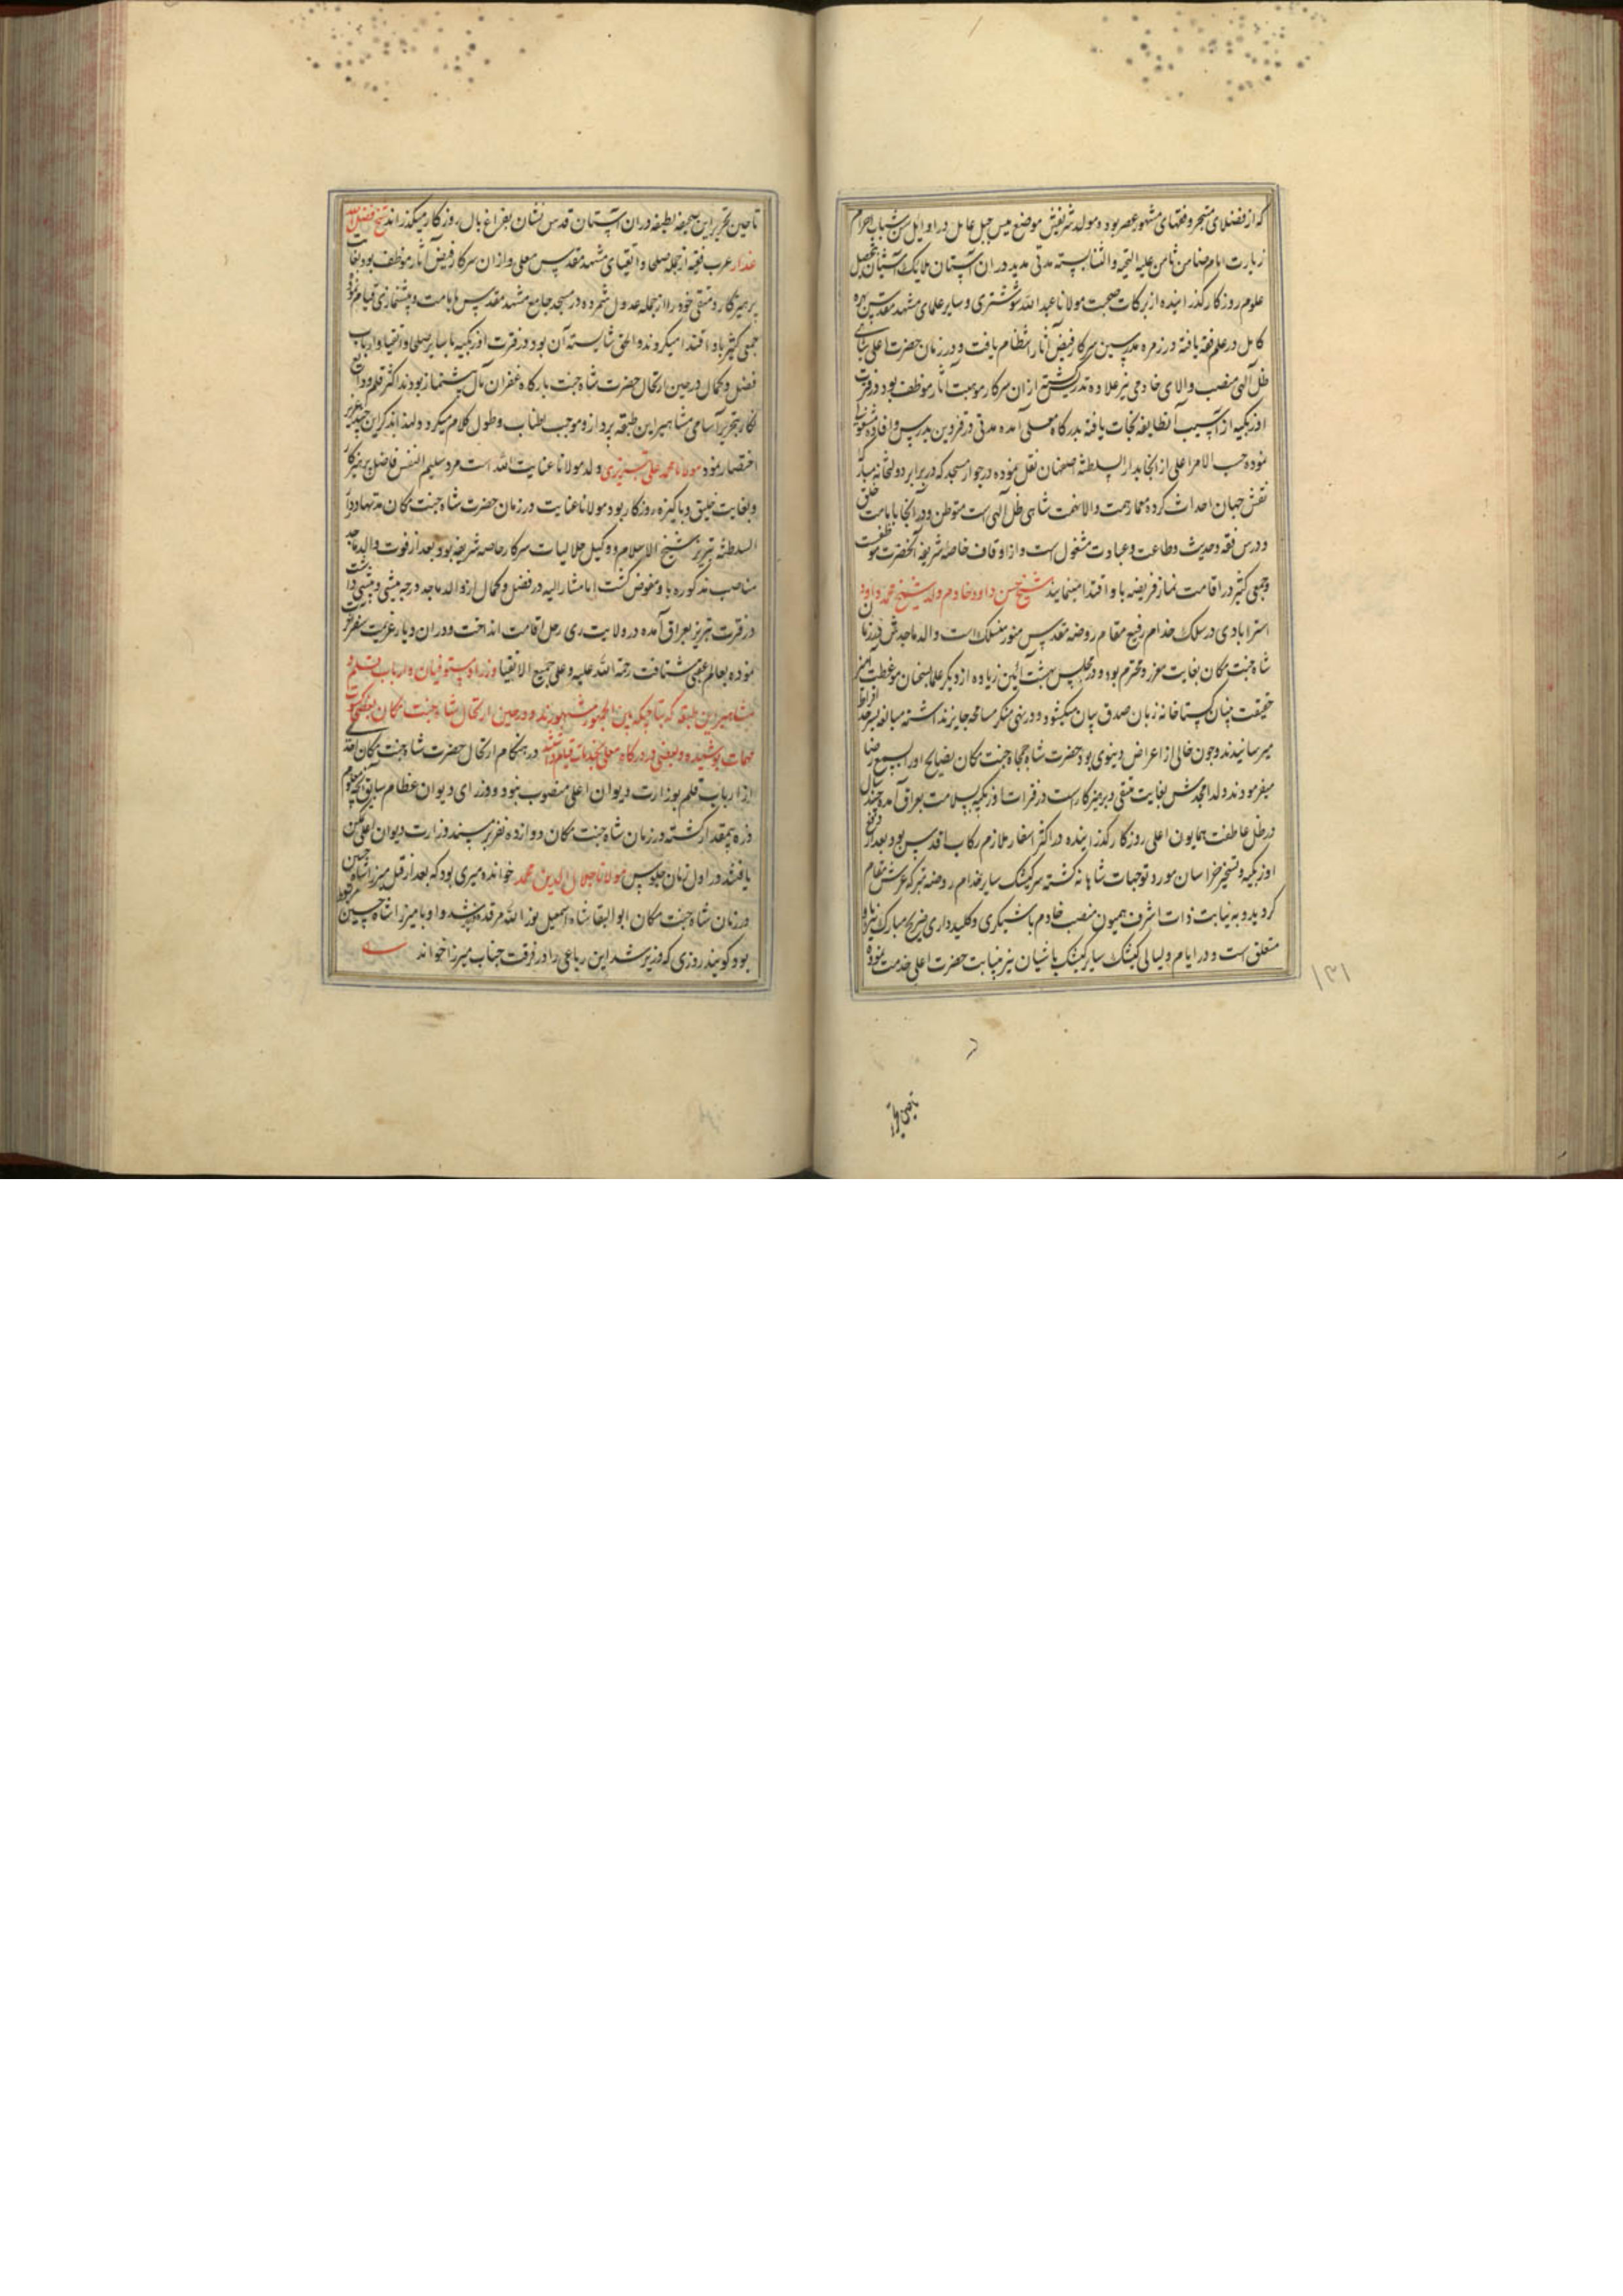 که از فضلای متبحر و فقهای مشهور عصر بوده مولد شریفش موضع میس جبل عامل در اوایل سن شباب احرام
زیارت امام ضامن ثامن علیه التحیه والثنا بسته مدتی مدید در ان آستان ملایک آشیان بتحصیل
علوم روزکار کذرانیده از برکات صحبت مولانا عبد الله شوشتری و سایر علمای مشهد مقدس بهره
کامل در علم فقه یافته در زمره مدرسین سرکار فیض آثار انتظام یافت و در زمان حضرت اعلی شاهی
ظل آلهی منصب والای خادمی نیز علاوه تدریس کشته از ان سرکار موهبت آثار موظف بود در فترت
اوزبکیه از آسیب آنطایفه نجات یافته بدرکاه معلی آمده مدتی در قزوین بدرس و افاده مشغولی
نموده حسب الامر اعلی از انجا بدار السلطنه اصفهان نقل نموده در جوار مسجد که در برابر دولتخانه مبارکه
نقش جهان احداث کرده معمار همت والانهمت شاهی ظل آلهی است متوطن و در آنجا بامامت خلق
و درس فقه و حدیث و طاعت و عبادت مشغول است و از اوقاف خاصه شریفه آنحضرت موظفست
و جمعی کثیر در اقامت نماز فریضه باو اقتدا مینمایند شیخ حسن داود خادم ولد شیخ محمد داود
استرابادی در سلک خدام رفیع مقام روضه مقدس منور منسلک است والد ماجدش در زمان
شاه جنت مکان بغایت معزز و محترم بود و در مجلس بهشت آئین زیاده از دیکر علما بسخنان موعظت آمیز
حقیقت بنیان کستاخانه زبان صدق بیان میکشود و در نهی منکر مسامحه جایز نداشته مبالغه بسرحد افراط
میرسانیدند و چون خالی از اعراض دنیوی بود حضرت شاه جمجاه جنت مکان نصایح او را بسمع رضا
میفرمودند ولد امجدش بغایت متقی و پرهیزکار است در فترات اوزبکیه بسلامت بعراق آمده چند سال
در ظل عاطفت همایون اعلی روزکار کذرانیده در اکثر اسفار ملازم رکاب اقدس بود و بعد از دفع
اوزبکیه و تسخیر خراسان مورد توجهات شاهانه کشته سرکشیک سایر خدام روضه متبرکه عرش مقام
کردید و به نیابت ذات اشرف همیون منصب خادم باشیکری و کلیدداری ضریح مبارک نیز باو
متعلق است و در ایام و لیالی کشیک سایر کشیک باشیان نیز بنیابت حضرت اعلی خدمت نموده
۱۳۱
تا حین تحریر این صحیفه لطیفه در ان آستان قدس نشان بفراغ بال روزکار میکذراند شیخ فضل الله
عرب فقیه از جمله صلحا و اتقیای مشهد مقدس معلی و از ان سرکار فیض آثار موظف بود بغایت
پرهیزکار و متقی خود را از جمله عدول شمرده در مسجد جامع مشهد مقدس بامامت و پیشنمازی قیام نموده
جمعی کثیر باو اقتدا میکردند والحق شایسته آن بود در فترت اوزبکیه با سایر صلحا و اتقیا و ارباب
فضل و کمال در حین ارتحال حضرت شاه جنت بارکاه غفران مآل پیشنماز بودند اکثر قلم وقایع
نکار بتحریر اسامی مشاهیر این طبقه پردازد موجب اطناب و طول کلام میکردد لهذا بذکر این چند عزیز
اختصار نمود مولانا محمد علی تبریزی ولد مولانا عنایت الله است مرد سلیم النفس فاضل پرهیزکار
و بغایت خلیق و پاکیزه روزکار بود مولانا عنایت در زمان حضرت شاه جنت مکان مدتها در دار
السلطنه تبریز شیخ الاسلام و وکیل حلالیات سرکار خاصه شریفه بود و بعد از فوت والد ماجد
مناصب مذکوره باو مفوض کشت اما مشار الیه در فضل و کمال از والد ماجد درجه بیشی و پیشی داشت
در فترت تبریز بعراق آمده در ولایت ری رحل اقامت انداخت و در ان دیار عزیمت سفر آخرت
نموده بعالم عقبی شتافت رحمة الله علیه و علی جمیع الاتقیا وزراء و مستوفیان و ارباب قلم و
مشاهیر این طبقه که بین الجمهور مشهورند و در حین ارتحال شاه جنت مکان بعضی
مهمات پوشیده و بعضی در درکاه معلی بخدمات قیام داشتند در هنکام ارتحال حضرت شاه جنت مکان احدی
از ارباب قلم بوزارت دیوان اعلی منصوب نبود و وزرای دیوان عظام سابق آنچه معلوم
ذره بیمقدار کشته در زمان شاه جنت مکان دوازده نفر بر مسند وزارت دیوان اعلی تمکن
یافتند در اول زمان جلوس مولانا جلال الدین محمد خوانده میری بود که بعد از قتل میرزا شاه حسین
در زمان شاه جنت مکان ابو البقا شاه اسمعیل نور الله مرقده وزیر شد و او با میرزا شاه حسین مربوط
بود و کویند روزی که وزیر شد این رباعی را در فرقت جناب میرزا خواند
تا حین تحریر